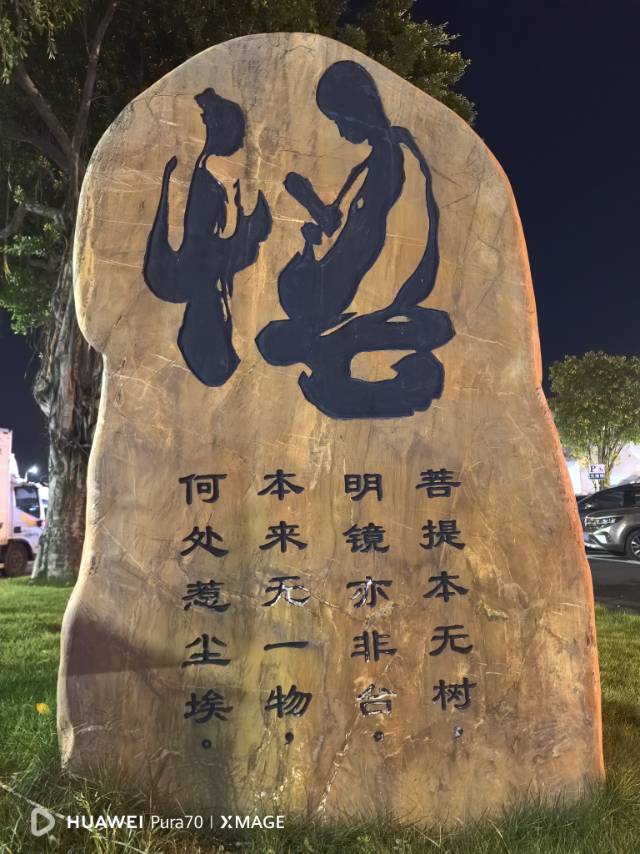 悟
菩提本无树，
明镜亦非台。
本来无一物，
何处惹尘埃。
P
HUAWEI Pura70 | XMAGE